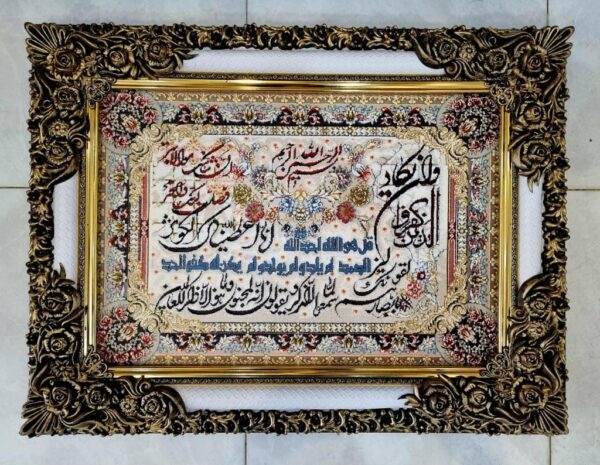 بسم الله الرحمن الرحیم
وان یکاد
الذین کفروا
لیزلقونک
بابصارهم
لما سمعوا الذکر و یقولون انه لمجنون و ما هو الا ذکر للعالمین
انا اعطیناک الکوثر
فصل لربک وانحر
ان شانئک هو الابتر
قل هو الله احد الله
الصمد لم یلد و لم یولد و لم یکن له کفوا احد